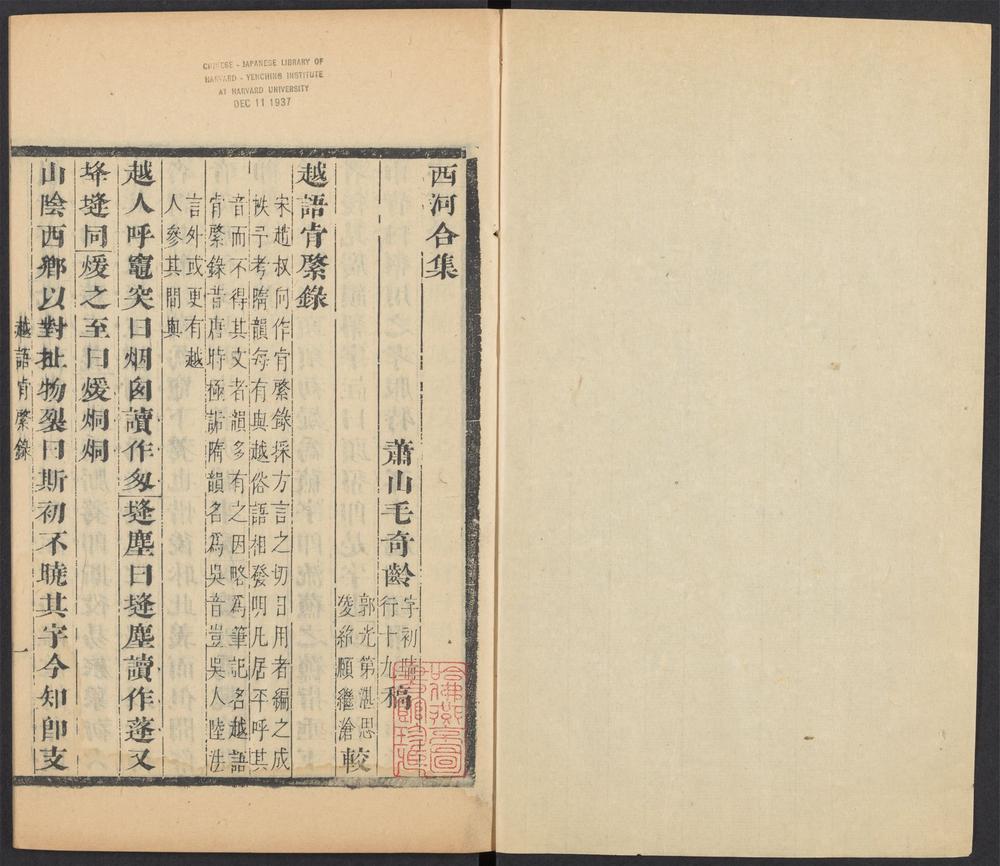 CHINESE - JAPANESE LIBRARY OF
HARVARD - YENCHING INSTITUTE
AT HARVARD UNIVERSITY
DEC 11 1937
西河合集
蕭山毛奇齡字初晴行十九稿
郭光第湛思
夌綸願繼滄較
越語肯綮錄
宋趙叔向作肯綮錄採方言之切日用者編之成
帙予考隋韻每有與越俗語相發明凡居平呼其
音而不得其文者韻多有之因略為筆記名越語
肯綮錄昔唐時極詬隋韻名爲吳音豈吳人陸法
言外或更有越
人參其間與
越人呼竈突曰烟囱讀作匆㙡塵曰㙡塵讀作蓬又
埄㙡同煖之至曰煖烔烔
山陰西鄉以對扯物裂曰斯初不曉其字今知卽支
越語肯綮錄
一